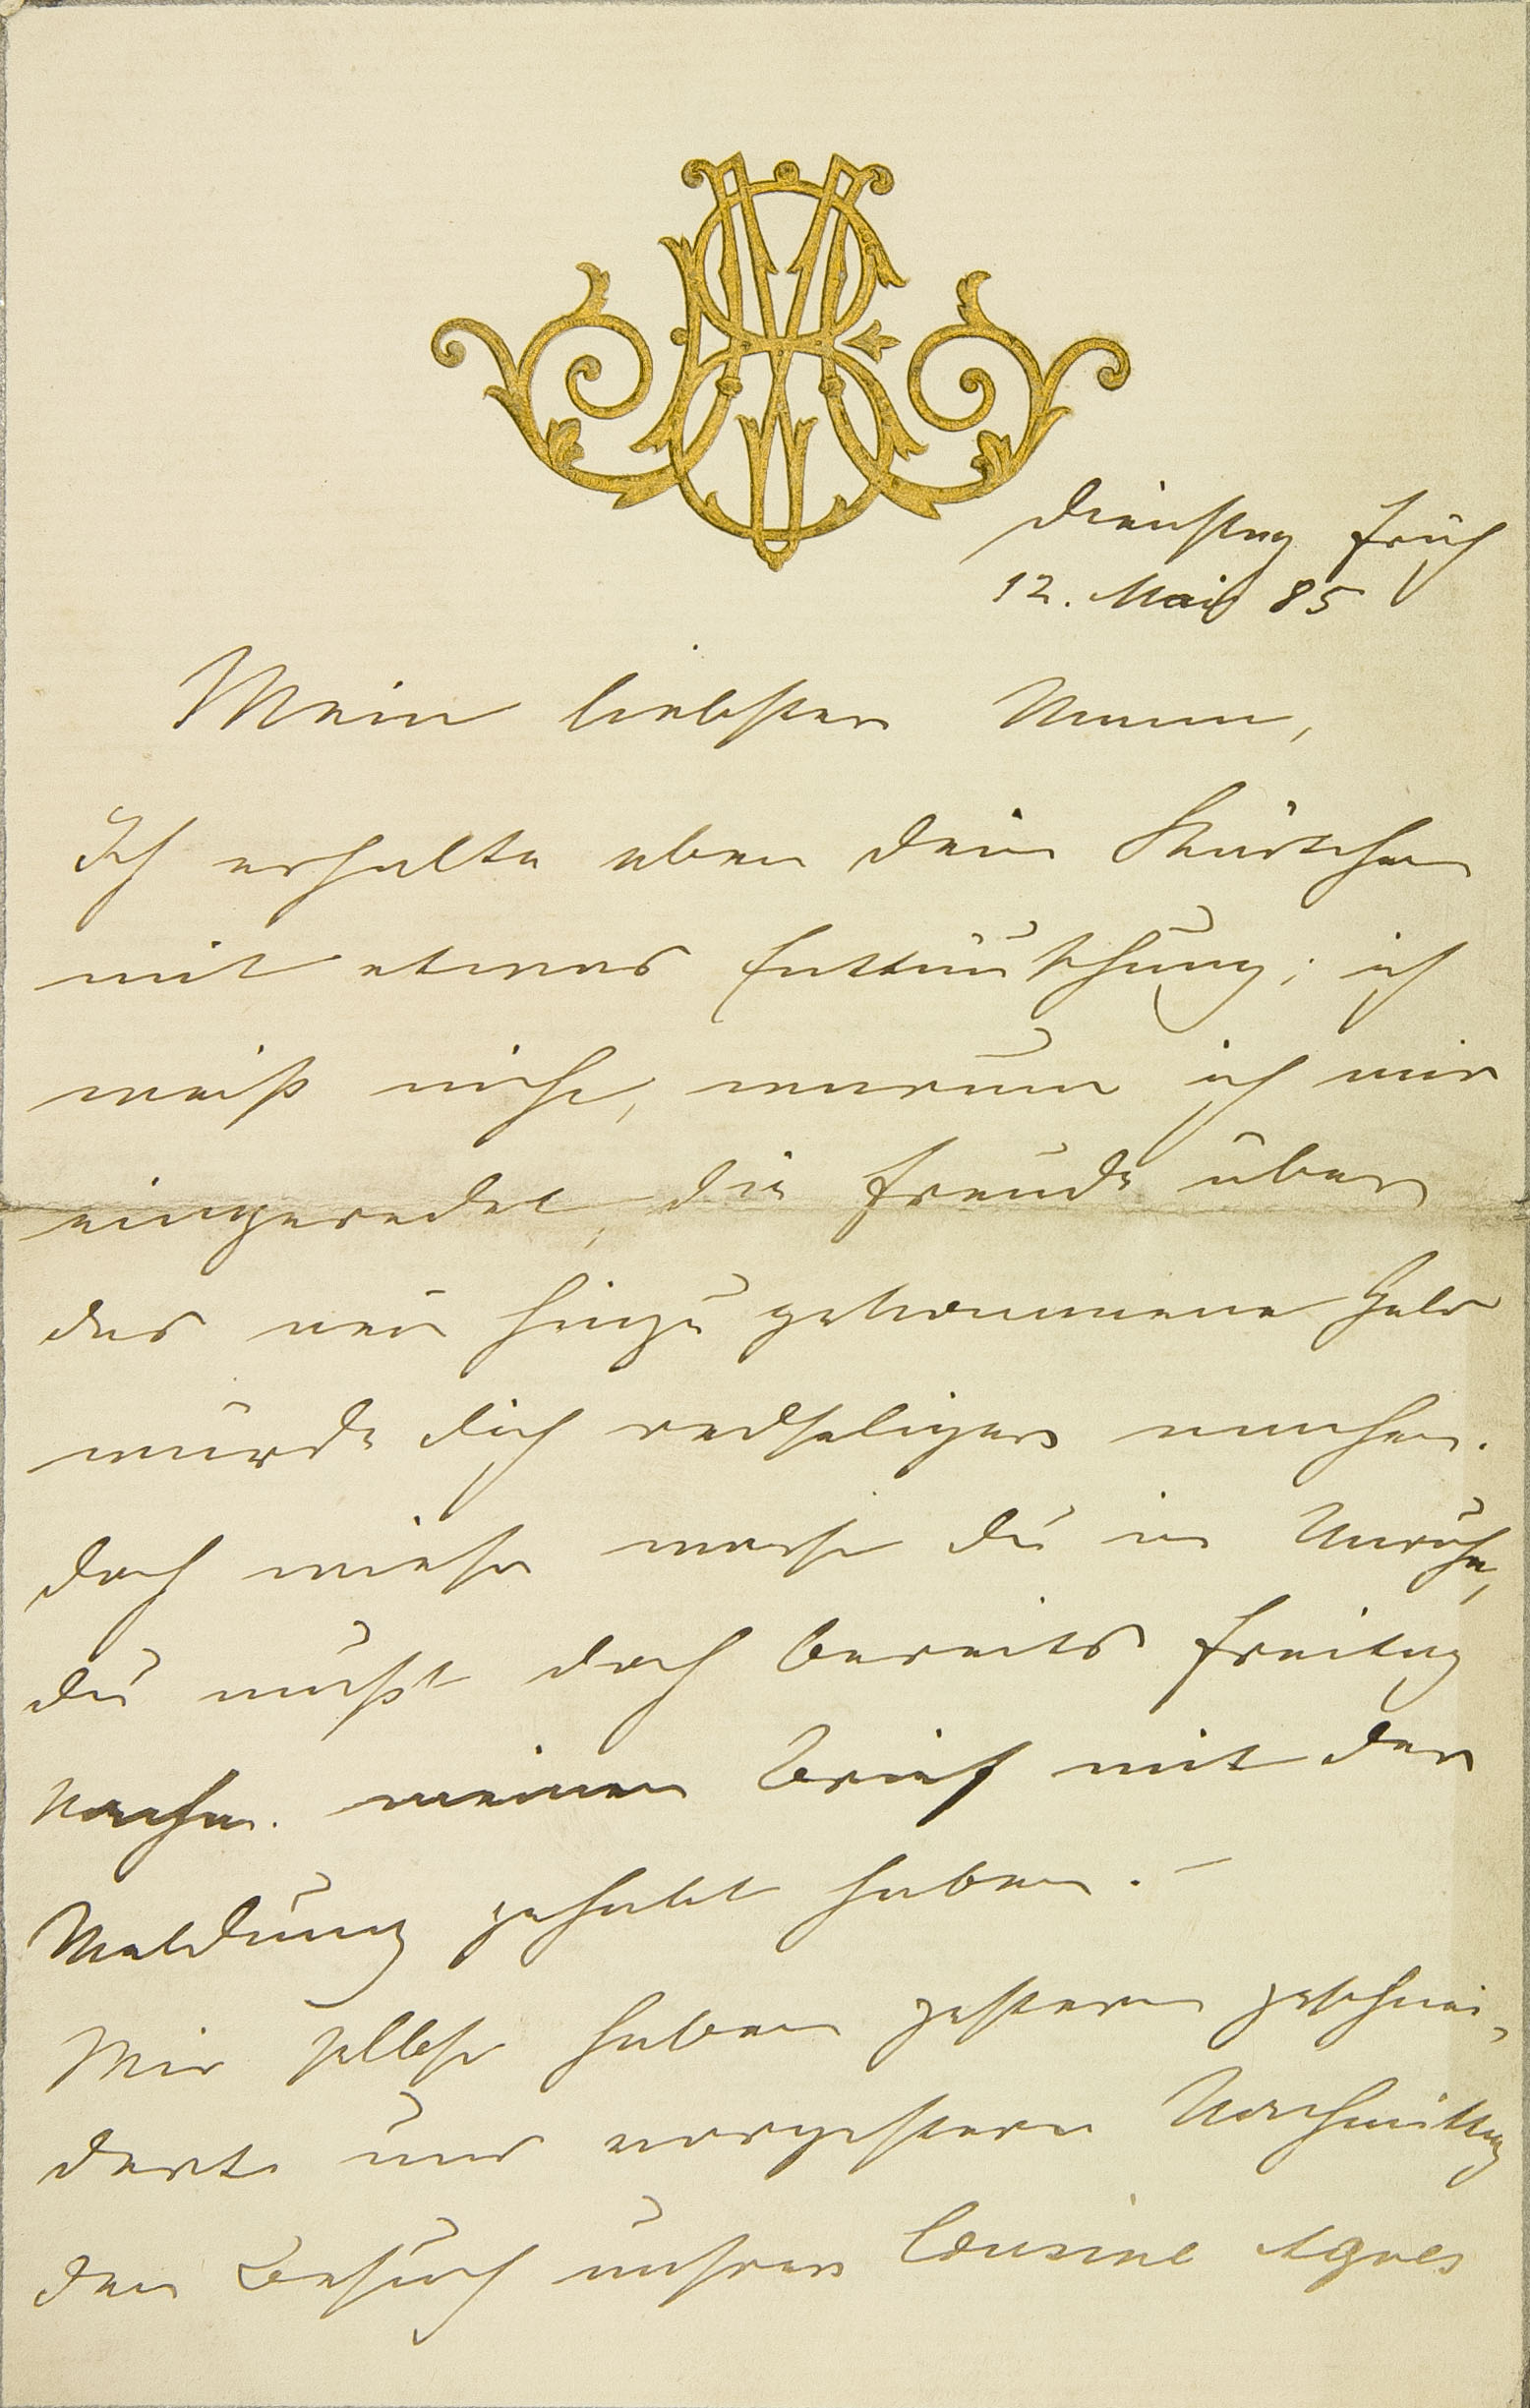 Dienstag früh
12. Mai 85
Mein liebster Mann,
Ich erhalte eben dein Kärtchen
mit etwas Enttäuschung; ich
weiß nicht, warum ich mir
eingeredet, die Freude über
das neu hinzu gekommene Geld
würde dich redseliger machen.
Doch wieso warst du in Unruhe,
du mußt doch bereits Freitag
Nachm. meinen Brief mit der
Meldung gehabt haben. –
Wir selbst haben gestern geschnei-
dert und vorgestern Nachmittag
den Besuch unsrer Cousine Agnes